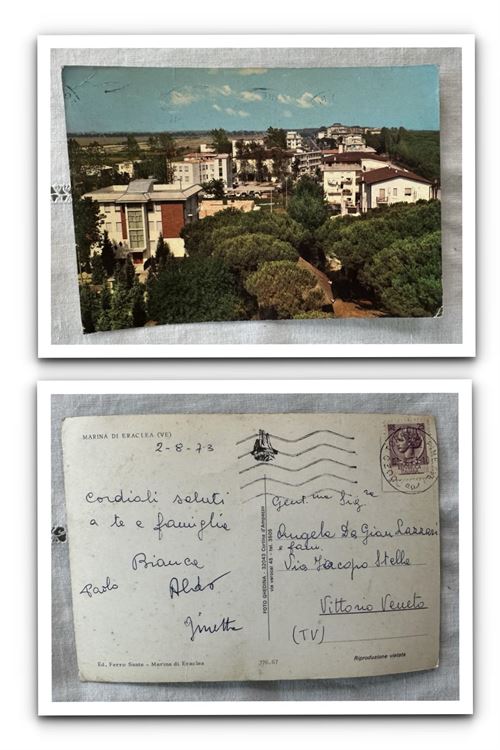 MARINA DI ERACLEA (VE)
2-8-73
Cordiali saluti
a te e famiglia
Bianca
Paolo Aldo
Ginetta
Gent.ma Sig.ra
Angela Da Gian Lazzari
e fam.
Via Jacopo Stella
Vittorio Veneto
(TV)
FOTO GHEDINA - 32043 Cortina d'Ampezzo
Ed. Ferro Sante - Marina di Eraclea
776.67
Riproduzione vietata